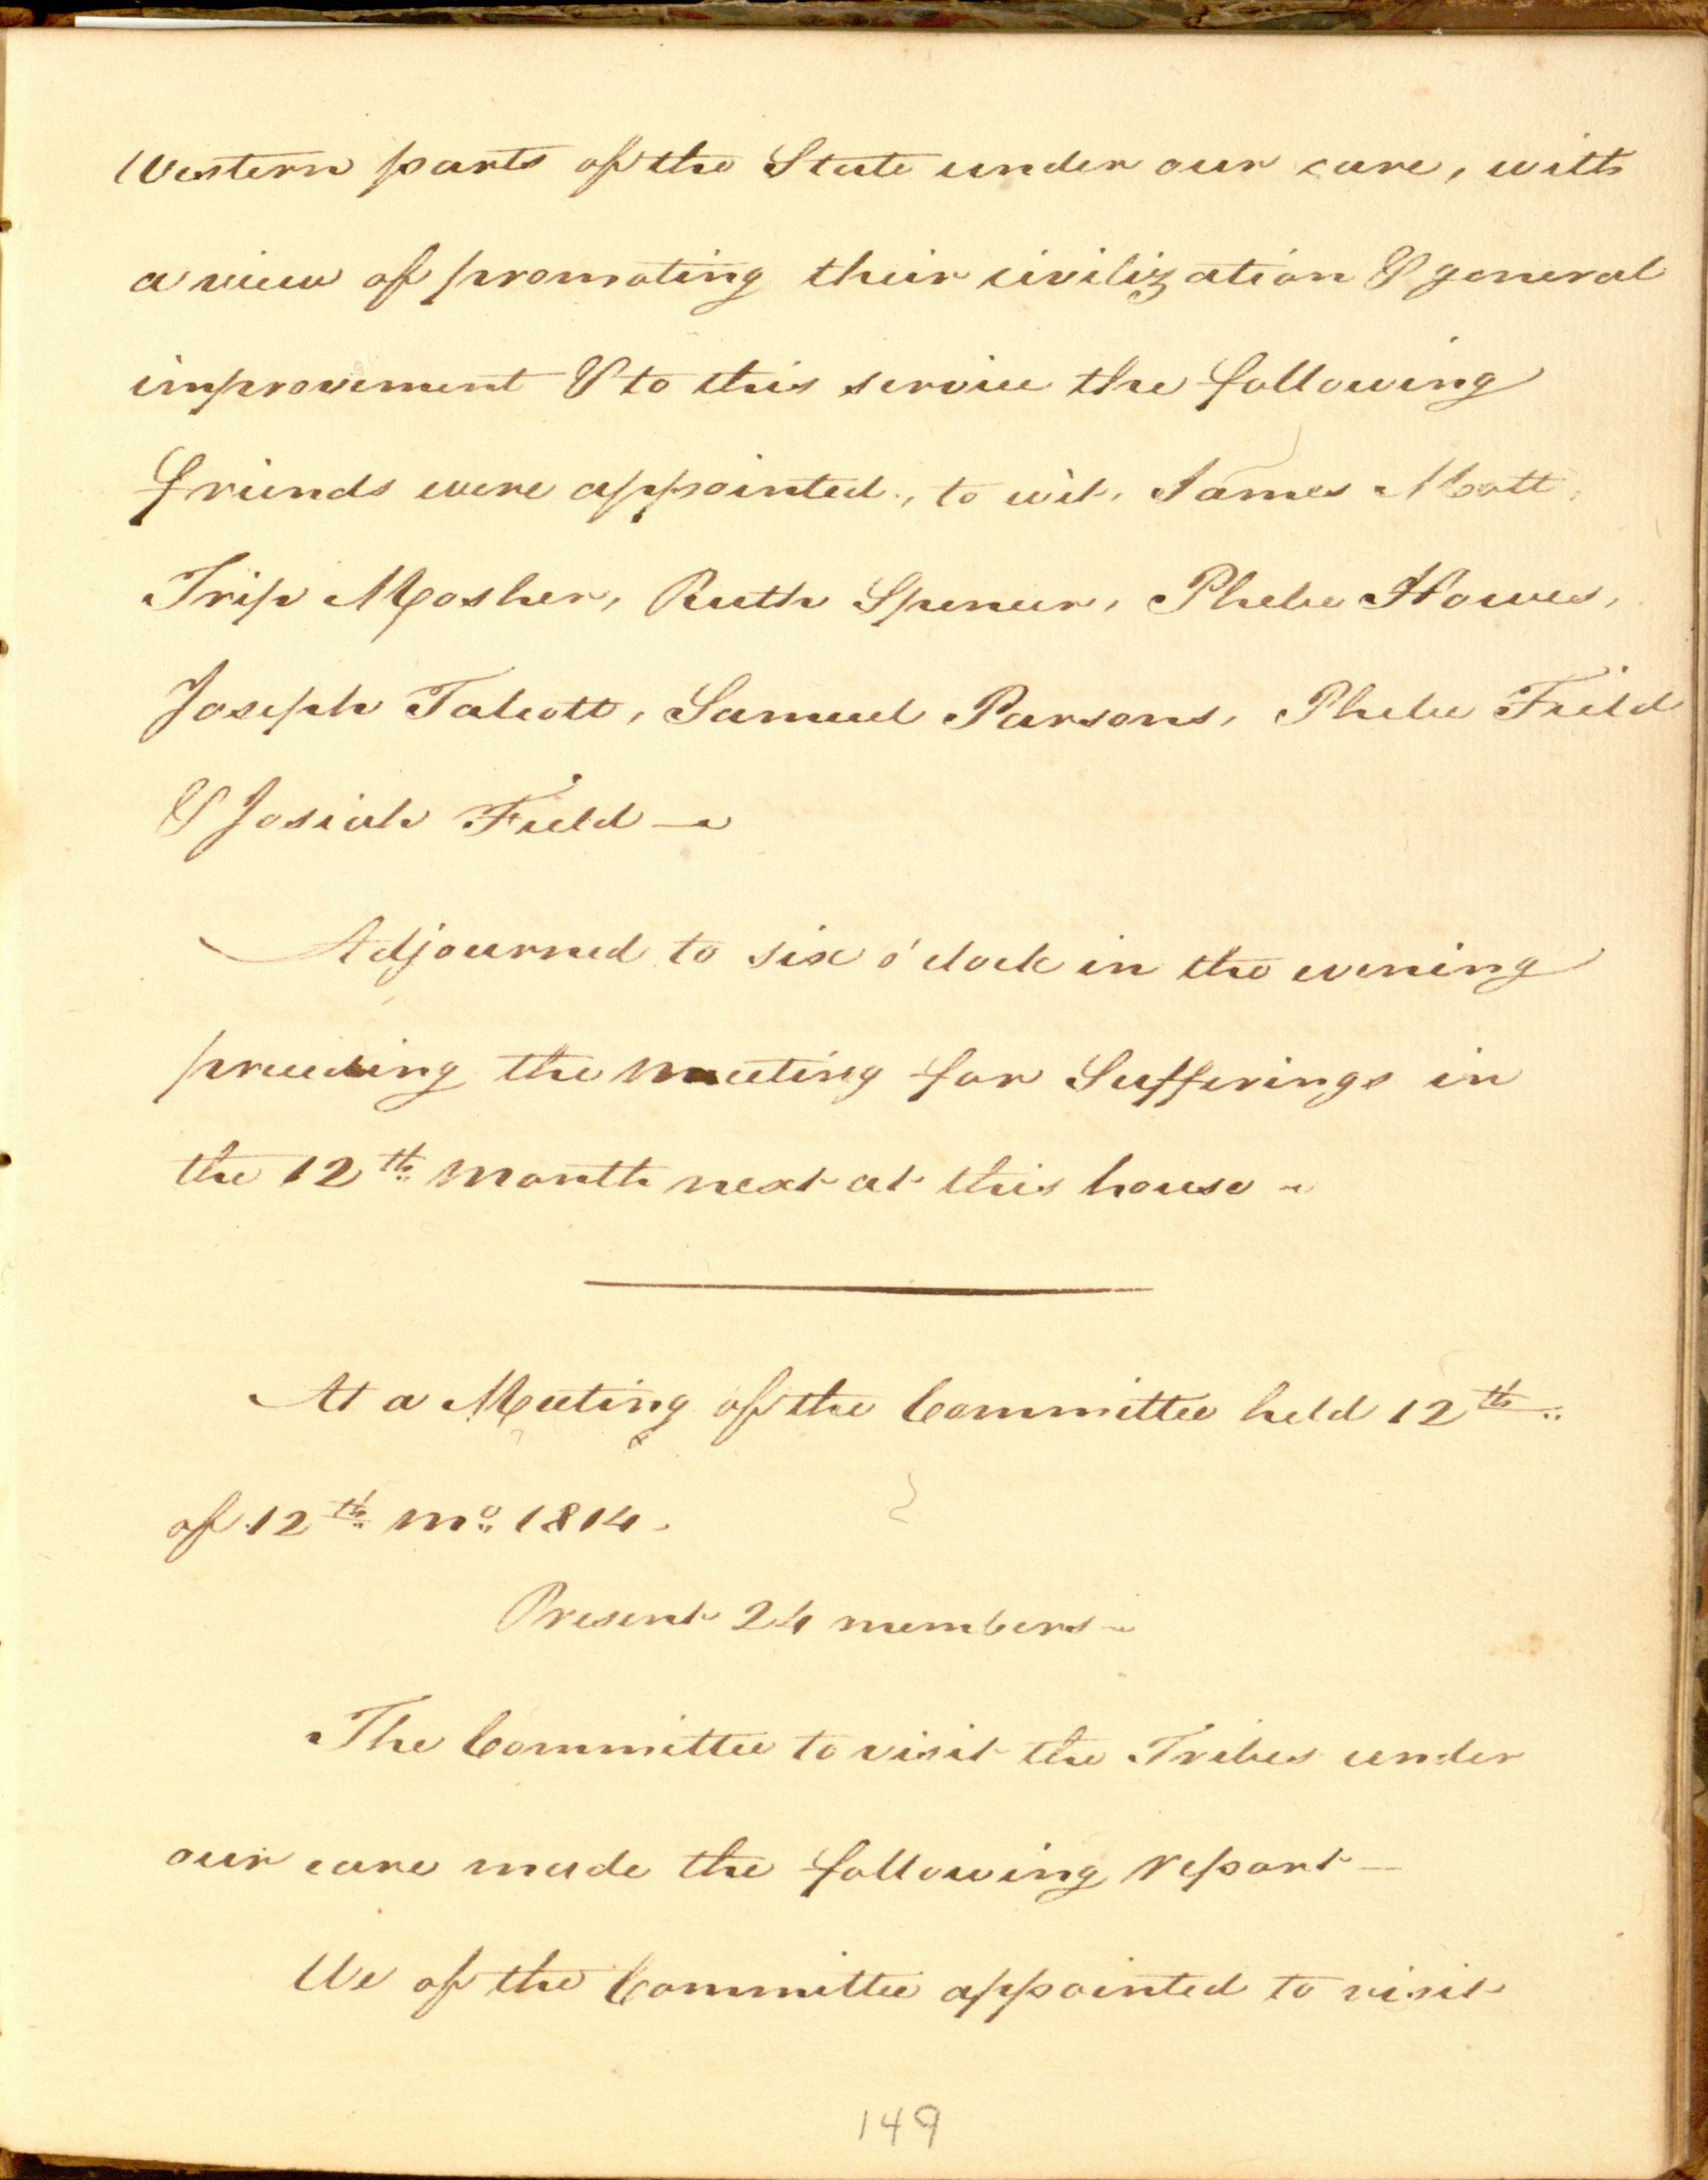 Western parts of the State under our care, with
a view of promoting their civilization & general
improvement & to this service the following
friends were appointed, to wit, James Mott,
Trip Mosher, Ruth Spencer, Phebe Howes,
Joseph Talcott, Samuel Parsons, Phebe Field
& Josiah Field —
Adjourned to six o'clock in the evening
preceding the Meeting for Sufferings in
the 12th Month next at this house -
At a Meeting of the Committee held 12th
of 12th Mo 1814.
Present 24 members -
The Committee to visit the Tribes under
our care made the following report —
We of the Committee appointed to visit
149